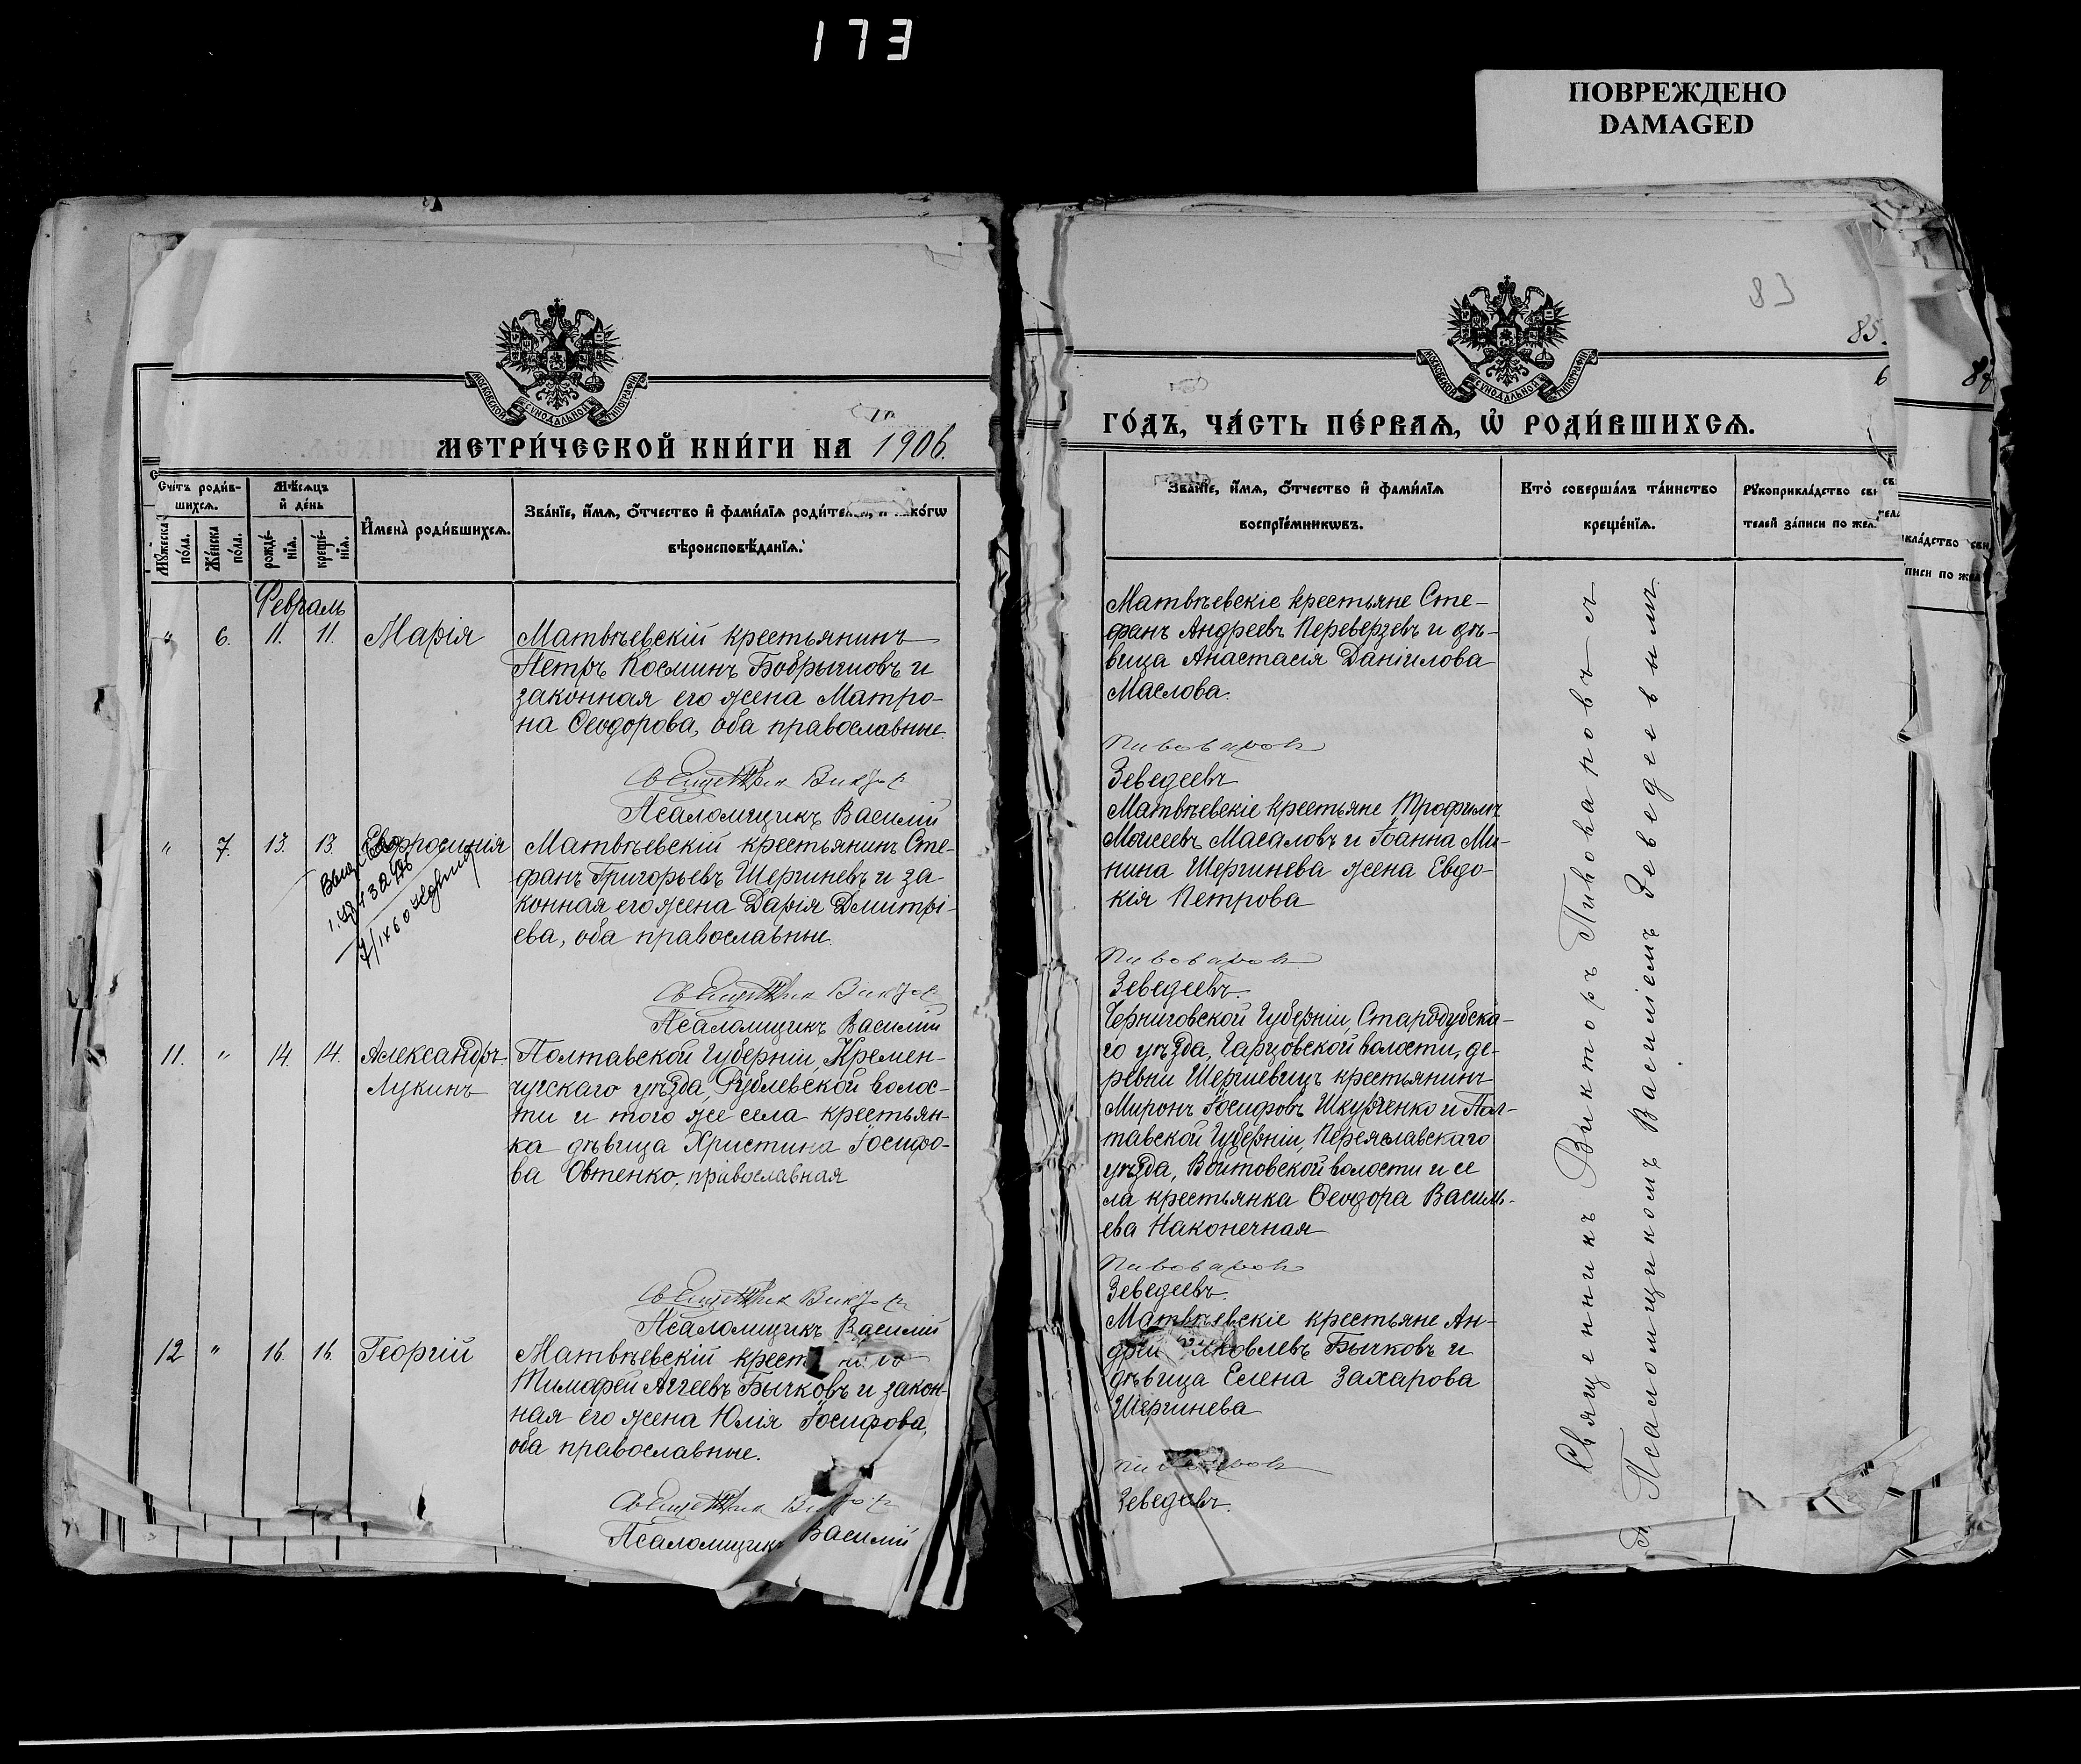 173
ПОВРЕЖДЕНО
DAMAGED
МОСКОВСКОЙ СѴНОДАЛЬНОЙ ТИПОГРАФІИ
МЕТРИ́ЧЕСКОЙ КНИ́ГИ НА 1906.
Сче́тъ роди́в-
шихсѧ.
Мѣ́сѧцъ
и҆ де́нь
Мꙋ́жеска по́ла.
Же́нска по́ла.
рожде́-нїѧ.
креще́-нїѧ.
И҆мена̀ роди́вшихсѧ.
Зва́нїе, и҆́мѧ, ѻ҆́тчество и҆ фами́лїѧ роди́телей, и҆ како́гѡ
вѣроисповѣ́данїѧ.
Февраль
" 6. 11. 11. Марія
Матвѣевскій крестьянинъ
Петръ Космин Бобрышовъ и
законная его жена Матро-
на Ѳеодорова, оба православные.
Священник Виктор
Псаломщикъ Василій
" 7. 13. 13. Евфросинія
Матвѣевскій крестьянинъ Сте-
фанъ Григорьевъ Шергиневъ и за-
конная его жена Дарія Димитрі-
ева, оба православные.
Священник Виктор
Псаломщикъ Василій
11. " 14. 14. Александръ
Лукинъ
Полтавской губерніи, Кремен-
чугскаго уѣзда, Рублевской волос-
ти и того же села крестьян-
ка дѣвица Христина Іосифо-
ва Овтенко, православная
Священник Виктор
Псаломщикъ Василій
12 " 16. 16. Георгій
Матвѣевскій крест
Тимофей Аггеевъ Бычковъ и закон-
ная его жена Юлія Іосифова,
оба православные.
Священник Виктор
Псаломщикъ Василій
83
85.
6
МОСКОВСКОЙ СѴНОДАЛЬНОЙ ТИПОГРАФІИ
ГО́ДЪ, ЧА́СТЬ ПЕ́РВАѦ, Ѽ РОДИ́ВШИХСѦ.
Зва́нїе, и҆́мѧ, ѻ҆́тчество и҆ фами́лїѧ
воспрїе́мникѡвъ.
Кто̀ соверша́лъ та́инство
креще́нїѧ.
Рꙋкоприкла́дство сви
телей за́писи по жел
Матвѣевскіе крестьяне Сте-
фанъ Андреевъ Переверзевъ и дѣ-
вица Анастасія Даніилова
Маслова.
Пивоваров
Зеведеевъ
Матвѣевскіе крестьяне Трофимъ
Моисеевъ Масаловъ и Іоанна Ми-
нина Шергинева жена Евдо-
кія Петрова
Пивоваров
Зеведеевъ.
Черниговской губерніи, Стародубска-
го уѣзда, Гарцовской волости, де-
ревни Шершевицъ крестьянинъ
Миронъ Іосифовъ Шкурченко и Пол-
тавской губерніи, Переяславскаго
уѣзда, Войтовской волости и се
ла крестьянка Ѳеодора Василь-
ева Наконечная
Пивоваров
Зеведеевъ.
Матвѣевскіе крестьяне Ан-
дрей Яковлевъ Бычковъ и
дѣвица Елена Захарова
Шергинева
Пивоваров
Зеведеевъ.
Священникъ Викторъ Пивоваровъ съ
Псаломщикомъ Василіемъ Зеведеевымъ.